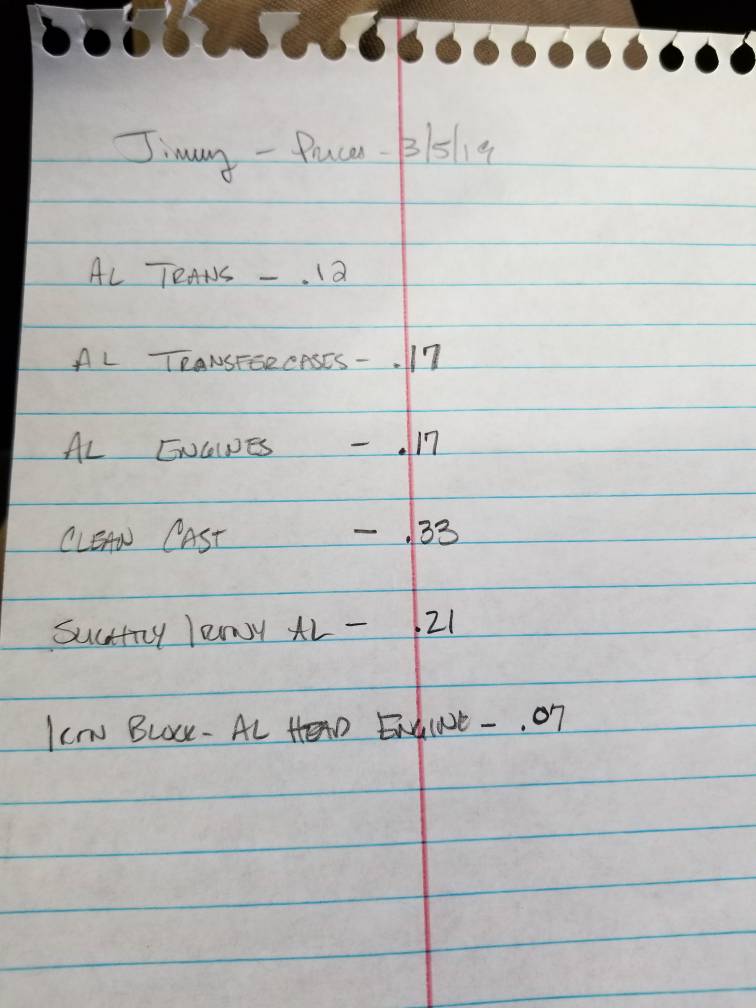 Jimmy - Prices - 3/5/19
AL TRANS - .12
AL TRANSFERCASES - .17
AL ENGINES - .17
CLEAN CAST - .33
SLIGHTLY IRONY AL - .21
IRON BLOCK - AL HEAD ENGINE - .07